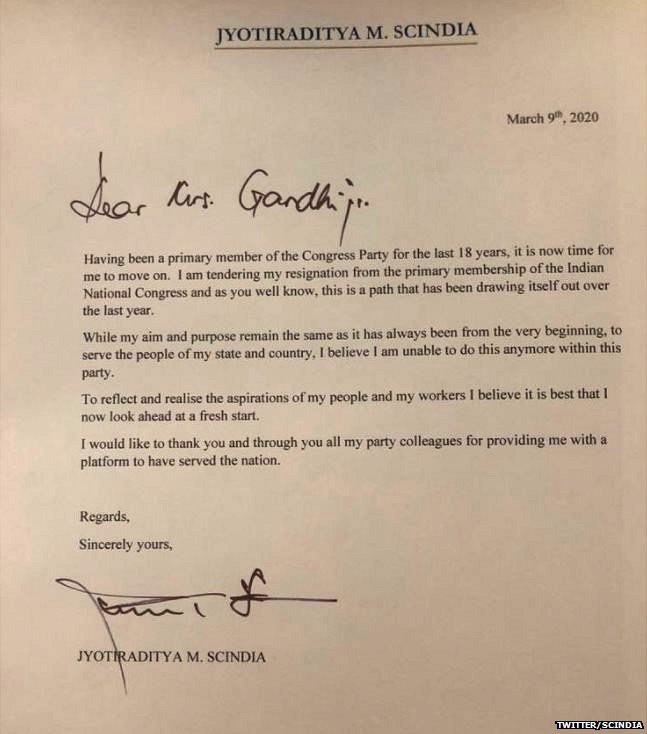 JYOTIRADITYA M. SCINDIA
March 9th, 2020
Dear Mrs. Gandhiji.
Having been a primary member of the Congress Party for the last 18 years, it is now time for
me to move on. I am tendering my resignation from the primary membership of the Indian
National Congress and as you well know, this is a path that has been drawing itself out over
the last year.
While my aim and purpose remain the same as it has always been from the very beginning, to
serve the people of my state and country, I believe I am unable to do this anymore within this
party.
To reflect and realise the aspirations of my people and my workers I believe it is best that I
now look ahead at a fresh start.
I would like to thank you and through you all my party colleagues for providing me with a
platform to have served the nation.
Regards,
Sincerely yours,
JYOTIRADITYA M. SCINDIA
TWITTER/SCINDIA